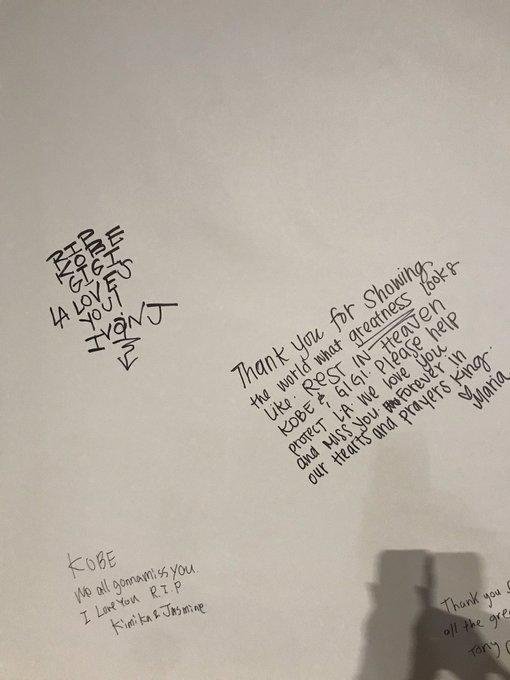 RIP
KOBE
GIGI
LA LOVES
YOU!
IVAN J
Thank you for showing
the world what greatness looks
like. REST IN Heaven
KOBE & GIGI. Please help
protect LA. We love you
and Miss you. Forever in
our Hearts and prayers King.
Maria
KOBE
We all gonna miss you.
I Love You R.I.P
Kimika & Jasmine
Thank you
all the
Tony